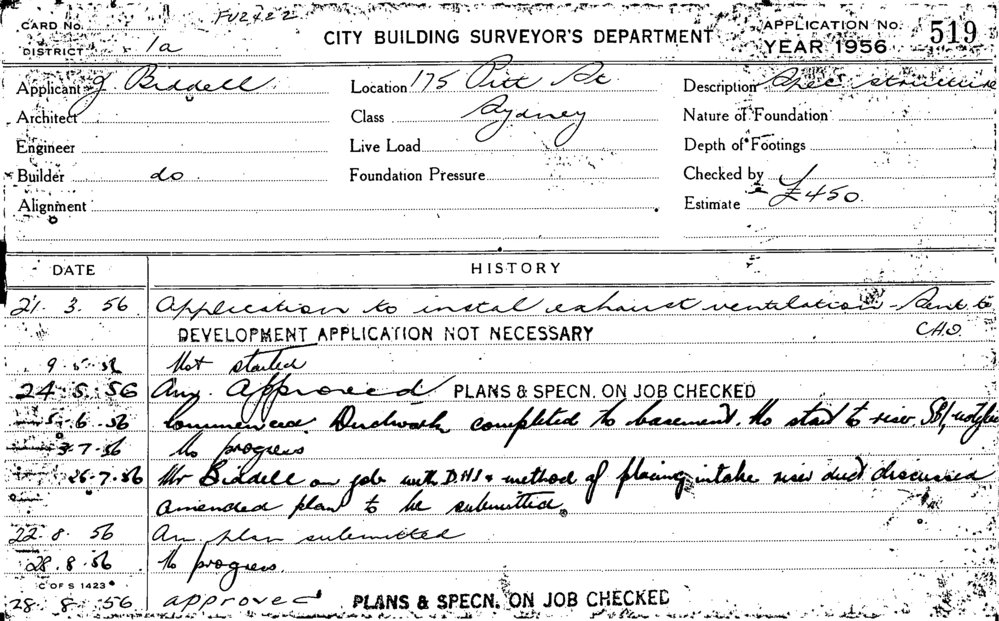 CARD No. FV2422
CITY BUILDING SURVEYOR'S DEPARTMENT
APPLICATION No. 519
DISTRICT 1a
YEAR 1956
Applicant J Biddell
Location 175 Pitt St
Description Spec structure
Architect
Class Sydney
Nature of Foundation
Engineer
Live Load
Depth of Footings
Builder do
Foundation Pressure
Checked by
Alignment
Estimate £450.
DATE HISTORY
21. 3. 56 Application to instal exhaust ventilation - Sent to
DEVELOPMENT APPLICATION NOT NECESSARY C.H.O.
9. 5. 56 Not started
24. 5. 56 Approved PLANS & SPECN. ON JOB CHECKED
5.6.56 Commenced. Ductwork completed to basement. No start to riser
3.7.56 No progress
26.7.56 Mr Biddell on job with D.H.I. & method of placing intake riser duct discussed
Amended plan to be submitted.
22. 8. 56 Am plan submitted
28. 8. 56 No progress.
C OF S 1423
28. 8. 56 approved PLANS & SPECN. ON JOB CHECKED